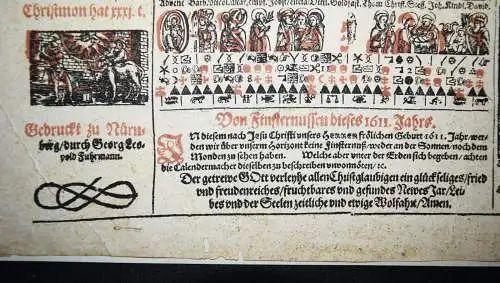 Christmon hat xxxj. t.
Gedruckt zu Nürn-
berg/durch Georg Leo-
pold Fuhrmann.
Von Finsternussen dieses 1611. Jahrs.
IN diesem nach Jesu Christi unsers HERREN frölichen Geburt 1611. Jahr/wer-
den wir über unserm Horizont keine Finsternuß/weder an der Sonnen/noch dem
Monden zu sehen haben. Welche aber unter der Erden sich begeben/achten
die Calendermacher dieselben zu beschreiben unvonnöten/ɾc.
Der getrewe GOtt verleyhe allen Christglaubigen ein glückseliges/fried
und freudenreiches/fruchtbares und gesundes Newes Jar/Lei-
bes und der Seelen zeitliche und ewige Wolfahrt/Amen.